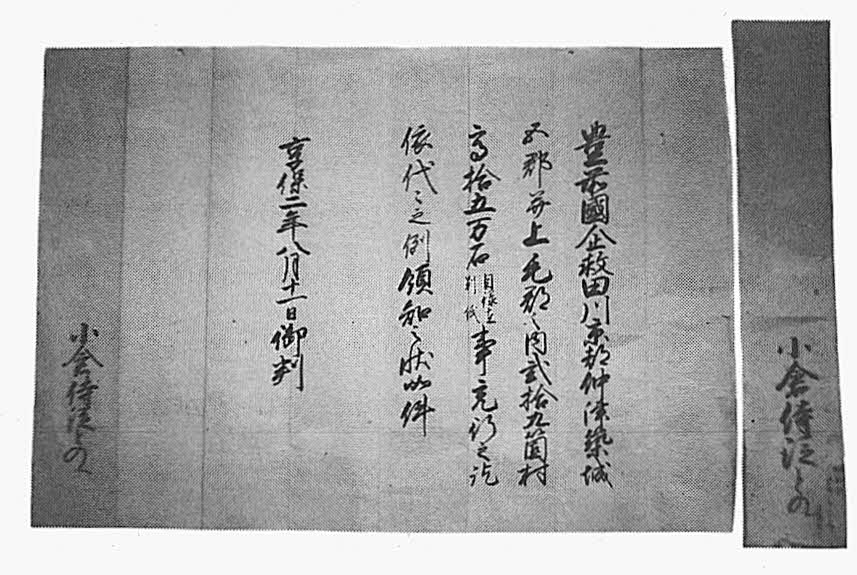 小倉侍従とのへ
豊前國企救田川京都仲津築城
五郡并上毛郡之内弐拾九箇村
高拾五万石目録在別紙事充行之訖
依代々之例領知之状如件
享保二年八月十一日御判
小倉侍従とのへ